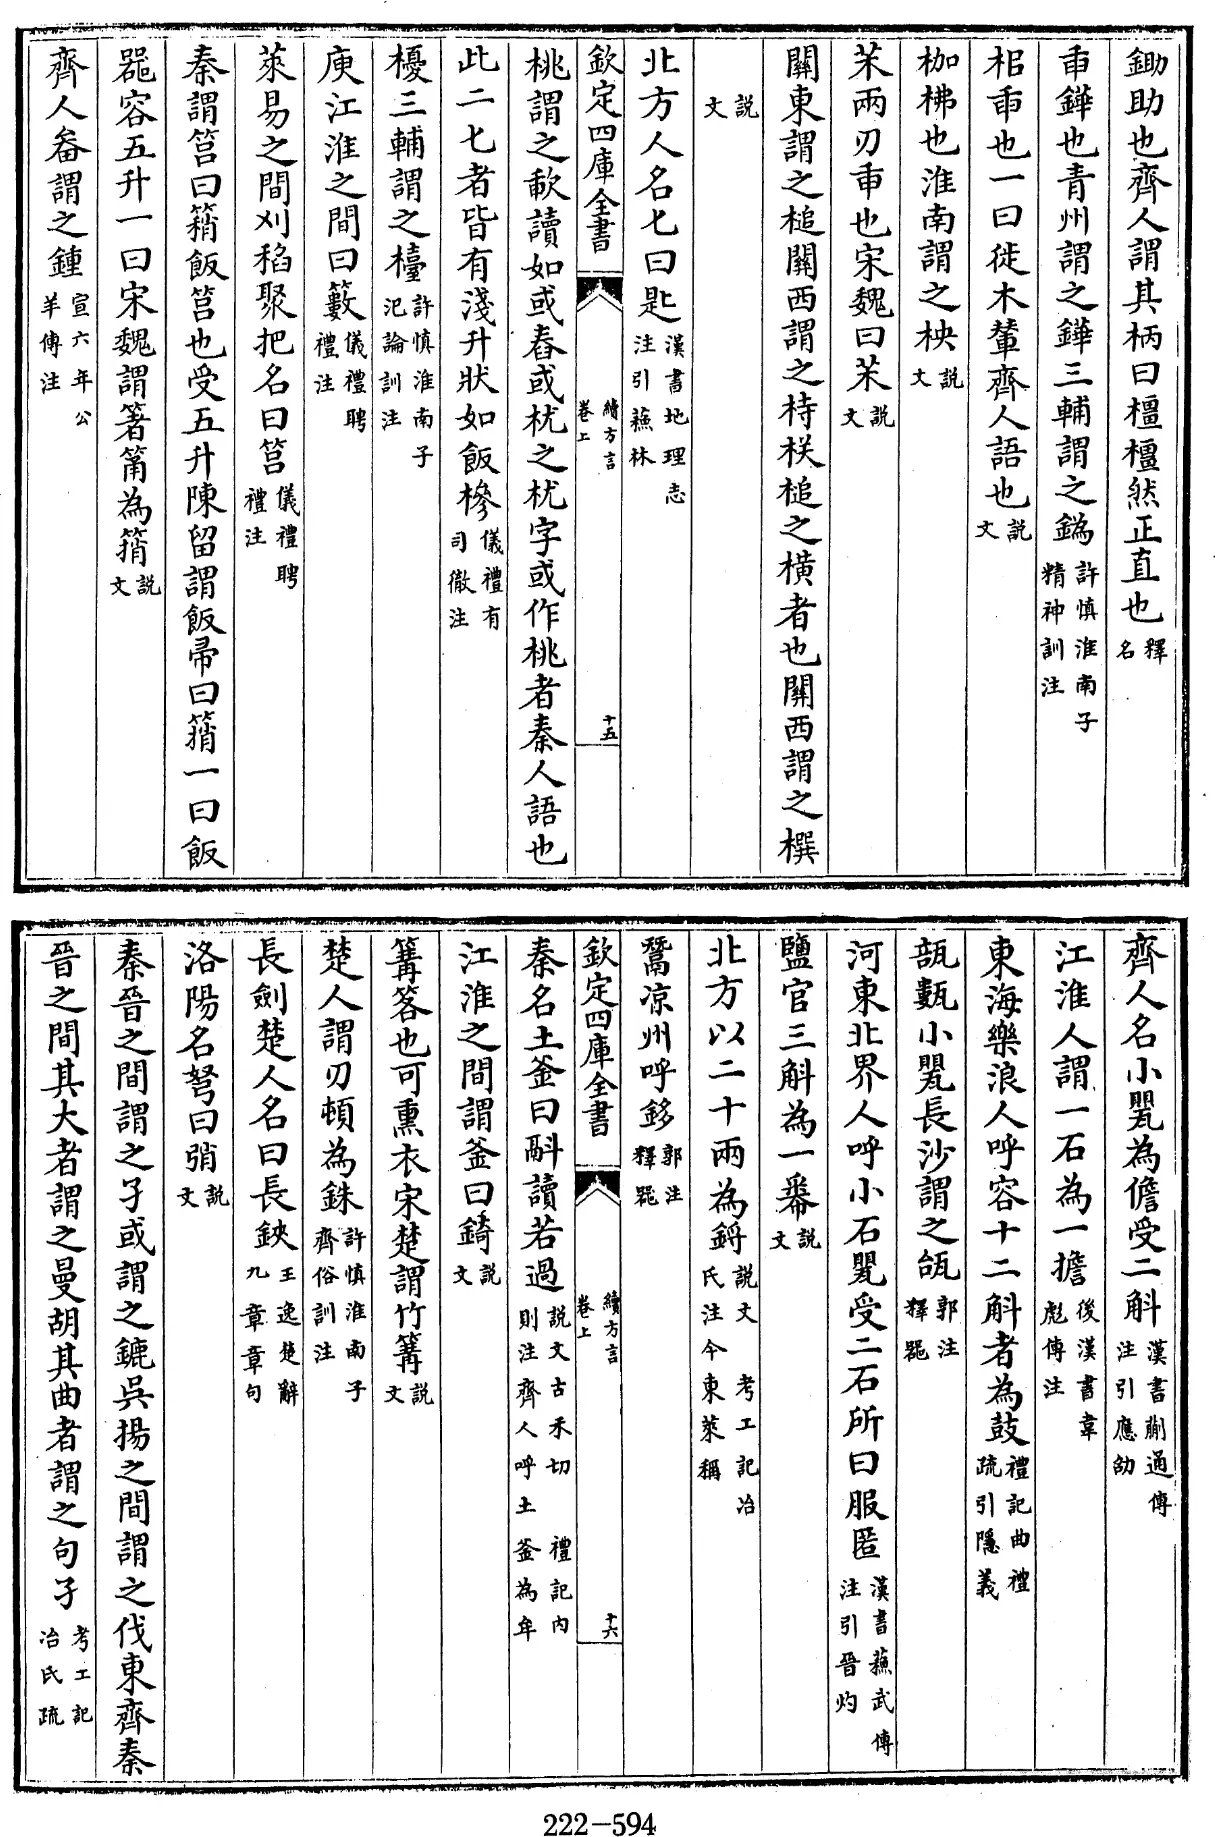 鋤助也齊人謂其柄曰橿橿然正直也釋名
臿鏵也青州謂之鏵三輔謂之鍋許慎淮南子精神訓注
梠臿也一曰徙木輂齊人語也説文
枷柫也淮南謂之柍説文
茮兩刃臿也宋魏曰茮説文
關東謂之槌關西謂之㭙㭙槌之橫者也關西謂之㯢
説文
北方人名匕曰匙漢書地理志注引蘇林
欽定四庫全書 續方言卷上 十五
桃謂之㪿讀如或舂或枕之枕字或作桃者秦人語也
此二匕者皆有淺升狀如飯橾儀禮有司徹注
櫌三輔謂之㯓許慎淮南子氾論訓注
庾江淮之間曰籔儀禮聘禮注
萊易之間刈稻聚把名曰筥儀禮聘禮注
秦謂筥曰䈰飯筥也受五升陳留謂飯帚曰䈰一曰飯
器容五升一曰宋魏謂箸筩為䈰説文
齊人畚謂之鍾宣六年公羊傳注
齊人名小甖為儋受二斛漢書蒯通傳注引應劭
江淮人謂一石為一擔後漢書韋彪傳注
東海樂浪人呼容十二斛者為鼓禮記曲禮疏引隱義
瓿甊小甖長沙謂之瓵郭注釋器
河東北界人呼小石甖受二石所曰服匿漢書蘇武傳注引晉灼
鹽官三斛為一䉒説文
北方以二十兩為鋝説文 考工記冶氏注今東萊稱
鬵凉州呼鉹郭注釋器
欽定四庫全書 續方言卷上 十六
秦名土釜曰䰙讀若過説文古禾切 禮記内則注齊人呼土釜為牟
江淮之間謂釜曰錡説文
篝笿也可熏衣宋楚謂竹篝説文
楚人謂刃頓為銖許慎淮南子齊俗訓注
長劍楚人名曰長鋏王逸楚辭九章章句
洛陽名弩曰弰説文
秦晉之間謂之孑或謂之鏕吳揚之間謂之伐東齊秦
晉之間其大者謂之曼胡其曲者謂之句孑考工記冶氏疏
222-594